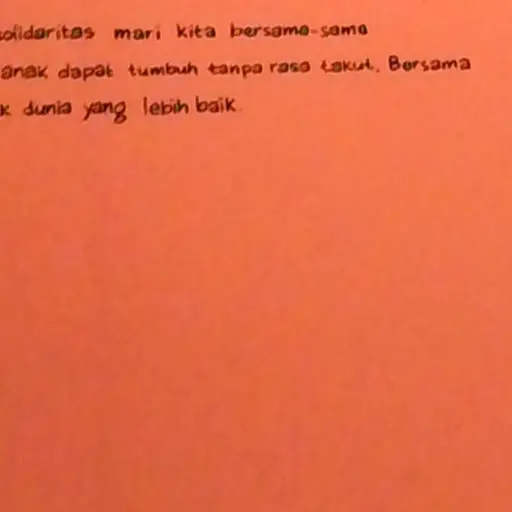 solidaritas mari kita bersama-sama
anak dapat tumbuh tanpa rasa takut. Bersama
k dunia yang lebih baik.